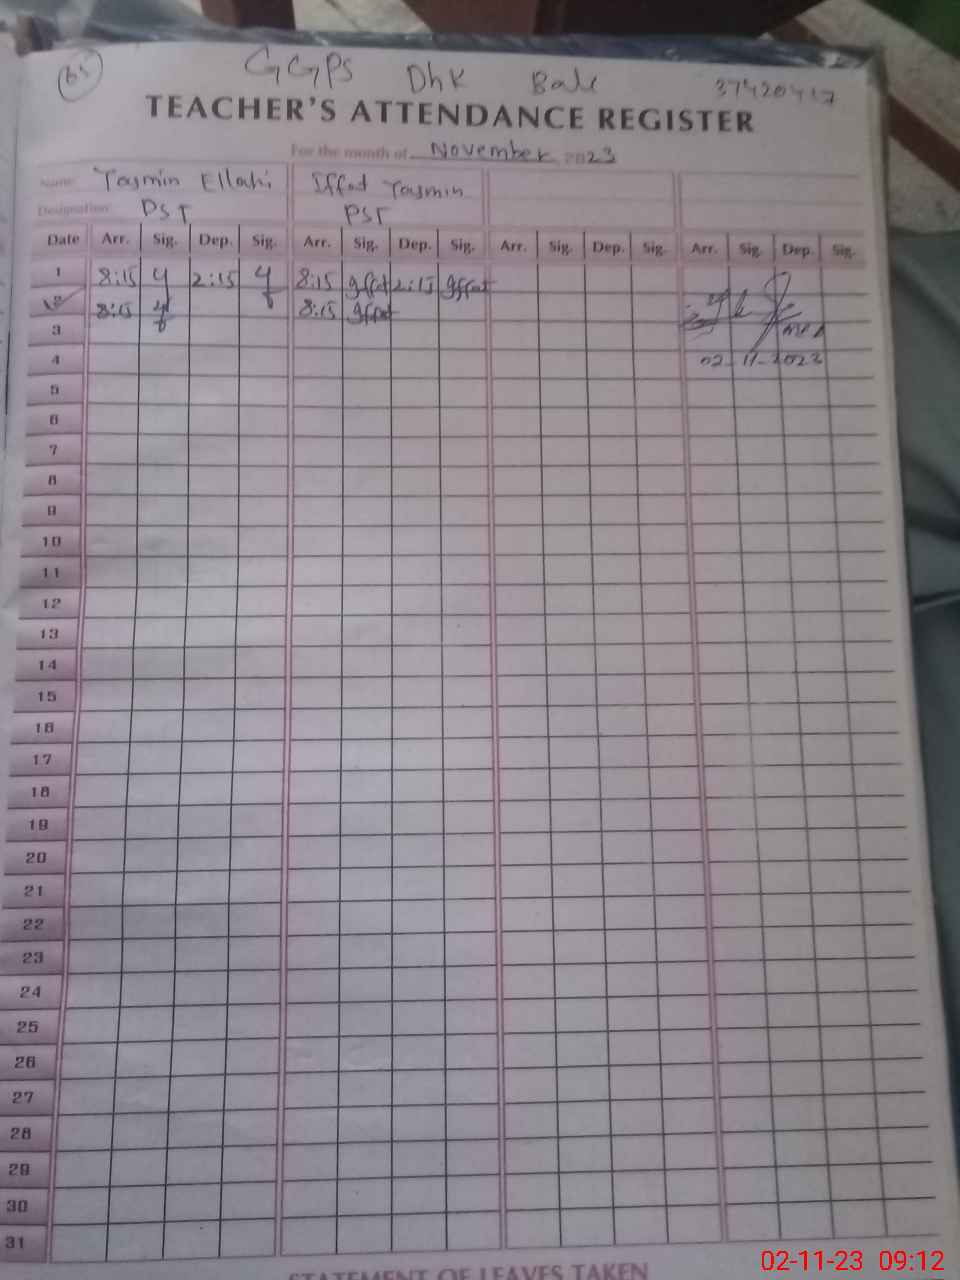 GGPS Dhk Bale 37420417
TEACHER'S ATTENDANCE REGISTER
For the month of November 2023
Name: Yasmin Ellahi Iffat Yasmin
Designation: PST PST
Date Arr. Sig. Dep. Sig. Arr. Sig. Dep. Sig. Arr. Sig. Dep. Sig. Arr. Sig. Dep. Sig.
1 8:15 2:15 8:15 Iffat 2:15 Iffat
2 8:15 8:15 Iffat
3
4 02-11-2023
5
6
7
8
9
10
11
12
13
14
15
16
17
18
19
20
21
22
23
24
25
26
27
28
29
30
31
STATEMENT OF LEAVES TAKEN
02-11-23 09:12